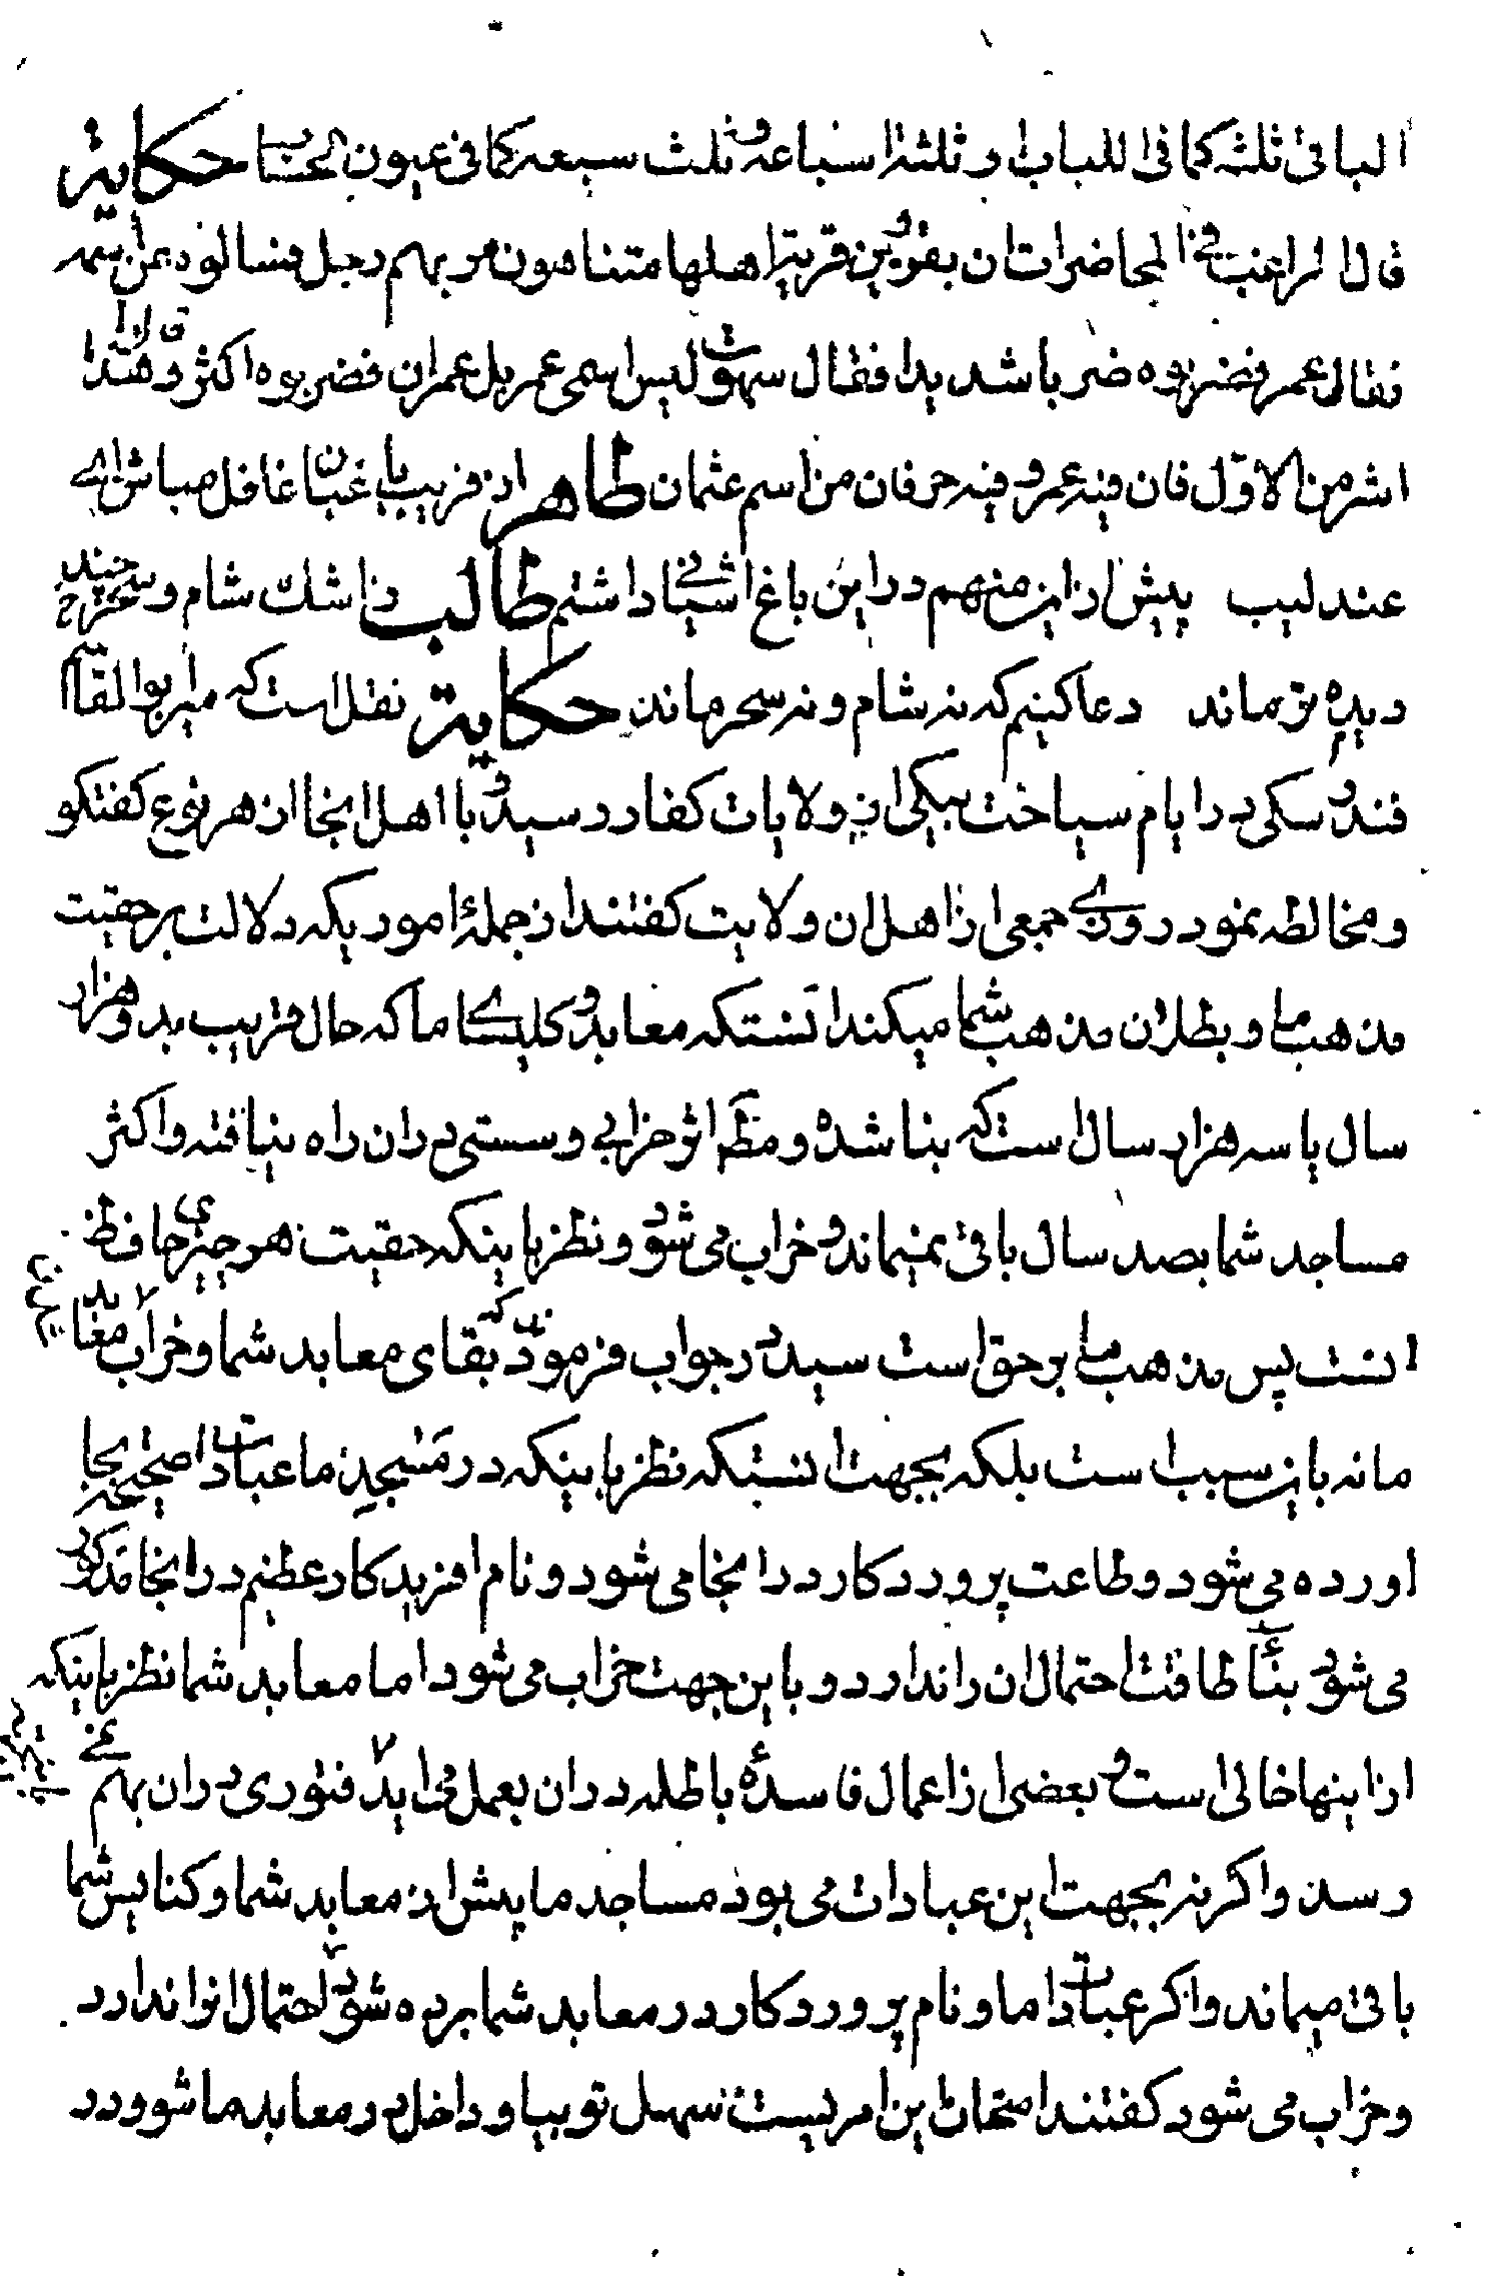 الباقی ثلثه کما فی اللباب و ثلثة اسباعه و ثلث سبعه کما فی عیون الحساب حکایة
قال الراغب فی المحاضرات ان بقزوین قریة اهلها متناهون مر بهم رجل فسالوه عن اسمه
فقال عمر فضربوه ضربا شدیدا فقال سهوت لیس اسمی عمر بل عمران فضربوه اکثر و قالوا هذا
اشر من الاول فان فیه عمر و فیه حرفان من اسم عثمان طاهر از فریب باغبان غافل مباش ای
عندلیب پیش ازین منهم در این باغ اشیانی داشتم طالب ز اشک شام و سحر چند
دیده تر ماند دعا کنیم که نه شام و نه سحر ماند حکایة نقل است که میر ابو القاسم
فندرسکی در ایام سیاحت بیکی از ولایات کفار رسید و با اهل انجا از هر نوع کفتکو
و مخالطه نمود روزی جمعی از اهل ان ولایت کفتند از جملهٔ اموریکه دلالت بر حقیت
مذهب ما و بطلان مذهب شما میکند انستکه معابد و کلیسای ما که حال قریب بدو هزار
سال یا سه هزار سال است که بنا شده و مطلقا اثر خرابی و سستی در ان راه نیافته و اکثر
مساجد شما بصد سال باقی نمیماند و خراب می شود و نظر باینکه حقیت هر چیزی حافظ
انست پس مذهب ما بر حق است سید در جواب فرمود که بقای معابد شما و خراب معابد
ما نه باین سبب است بلکه بجهت انستکه نظر باینکه در مسجد ما عبادات صحیحه بجا
اورده می شود و طاعت پروردکار در انجا می شود و نام افریدکار عظیم در انجا مذکور
می شود بنا طاقت احتمال ان را ندارد و باین جهت خراب می شود اما معابد شما نظر باینکه
از اینها خالی است و بعضی از اعمال فاسدهٔ باطله در ان بعمل می اید فتوری در ان بهم نمی
رسد و اکر نه بجهت این عبادات می بود مساجد ما پیش از معابد شما و کنایس شما
باقی میماند و اکر عبادات ما و نام پروردکار در معابد شما برده شود احتمال انرا ندارد
و خراب می شود کفتند امتحان این امریست سهل تو بیا و داخل در معابد ما شو و در